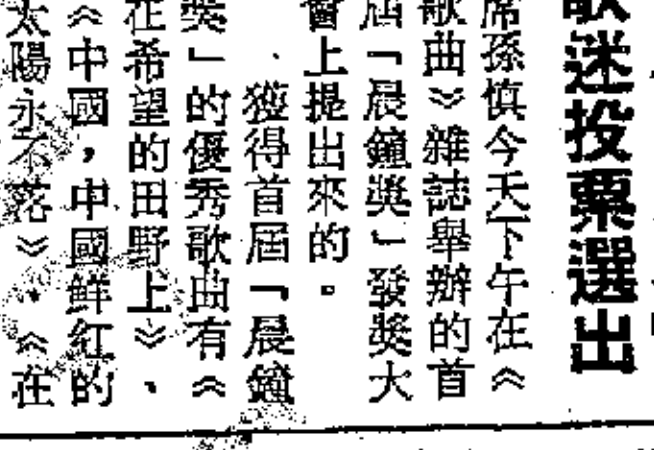 歌迷投票選出
席孫慎今天下午在《
歌曲》雜誌舉辦的首
屆「晨鐘獎」發獎大
會上提出來的。
獲得首屆「晨鐘
獎」的優秀歌曲有《
在希望的田野上》、
《中國,中國鮮紅的
太陽永不落》、《在